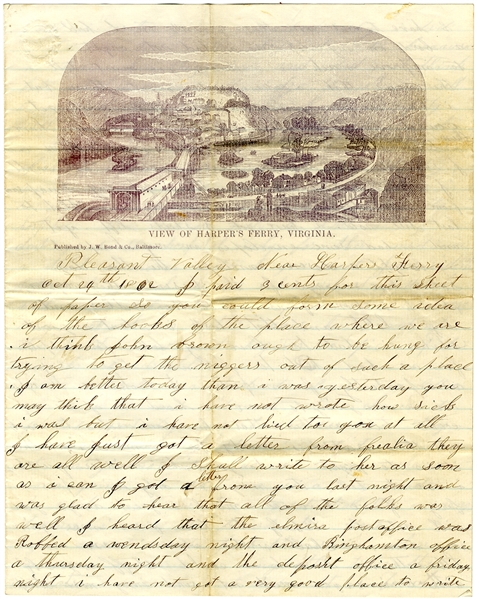 VIEW OF HARPER'S FERRY, VIRGINIA.
Published by J. W. Bond & Co., Baltimore.
Pleasant Valley Near Harpers Ferry
Oct 29th 1862 I paid 3 cents for this sheet
of paper so you could form some idea
of the looks of the place where we are
i think John brown ought to be hung for
trying to get the niggers out of such a place
I am better today than i was yesterday you
may think that i have not wrote how sick
i was but i have not lied to you at all
I have Just got a letter from frealia they
are all well I shall write to her as soon
as i can I got a letter from you last night and
was glad to hear that all of the folks was
well I heard that the elmira postoffice was
Robbed a wendsday night and Binghamton office
a thursday night and the deposit office a friday
night i have not got a very good place to write